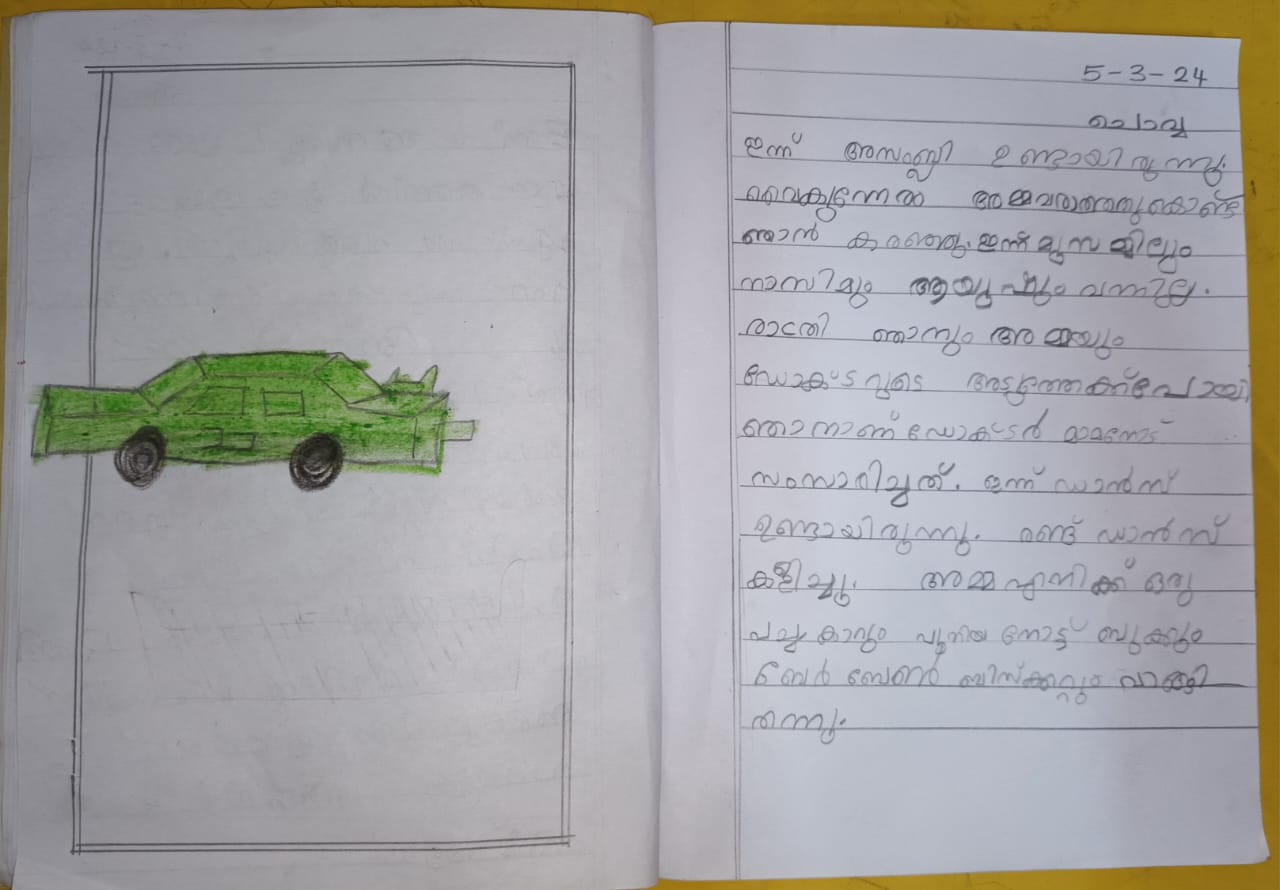 5-3-24
ചൊവ്വ
ഇന്ന് അസംബ്ലി ഉണ്ടായിരുന്നു.
വൈകുന്നേരം അമ്മവരാത്തതുകൊണ്ട്
ഞാൻ കരഞ്ഞു. ഇന്ന് മൂസ മില്ലും
നാസിമും ആയുഷും വന്നില്ല.
രാത്രി ഞാനും അമ്മയും
ഡോക്ടറുടെ അടുത്തേക്ക് പോയി
ഞാനാണ് ഡോക്ടർ മാമനോട്
സംസാറിച്ചത്. ഇന്ന് ഡാൻസ്
ഉണ്ടായിരുന്നു. രണ്ട് ഡാൻസ്
കളിച്ചു. അമ്മ എനിക്ക് ഒരു
പച്ച കാറും പുതിയ നോട്ട് ബുക്കും
ബിസ്ക്കറ്റും വാങ്ങി
തന്നു.